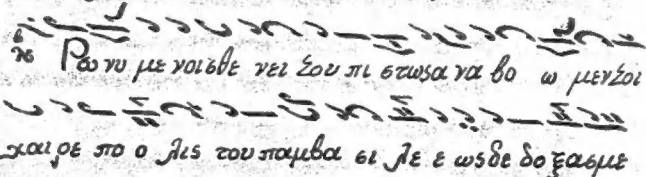 Ρω νυ με νοι σθε νει ξου πι στω σα να βο ω μεν ξοι
χαι ρε πο ο λις του παμ βα σι λε ε ως δε δο ξα σμε